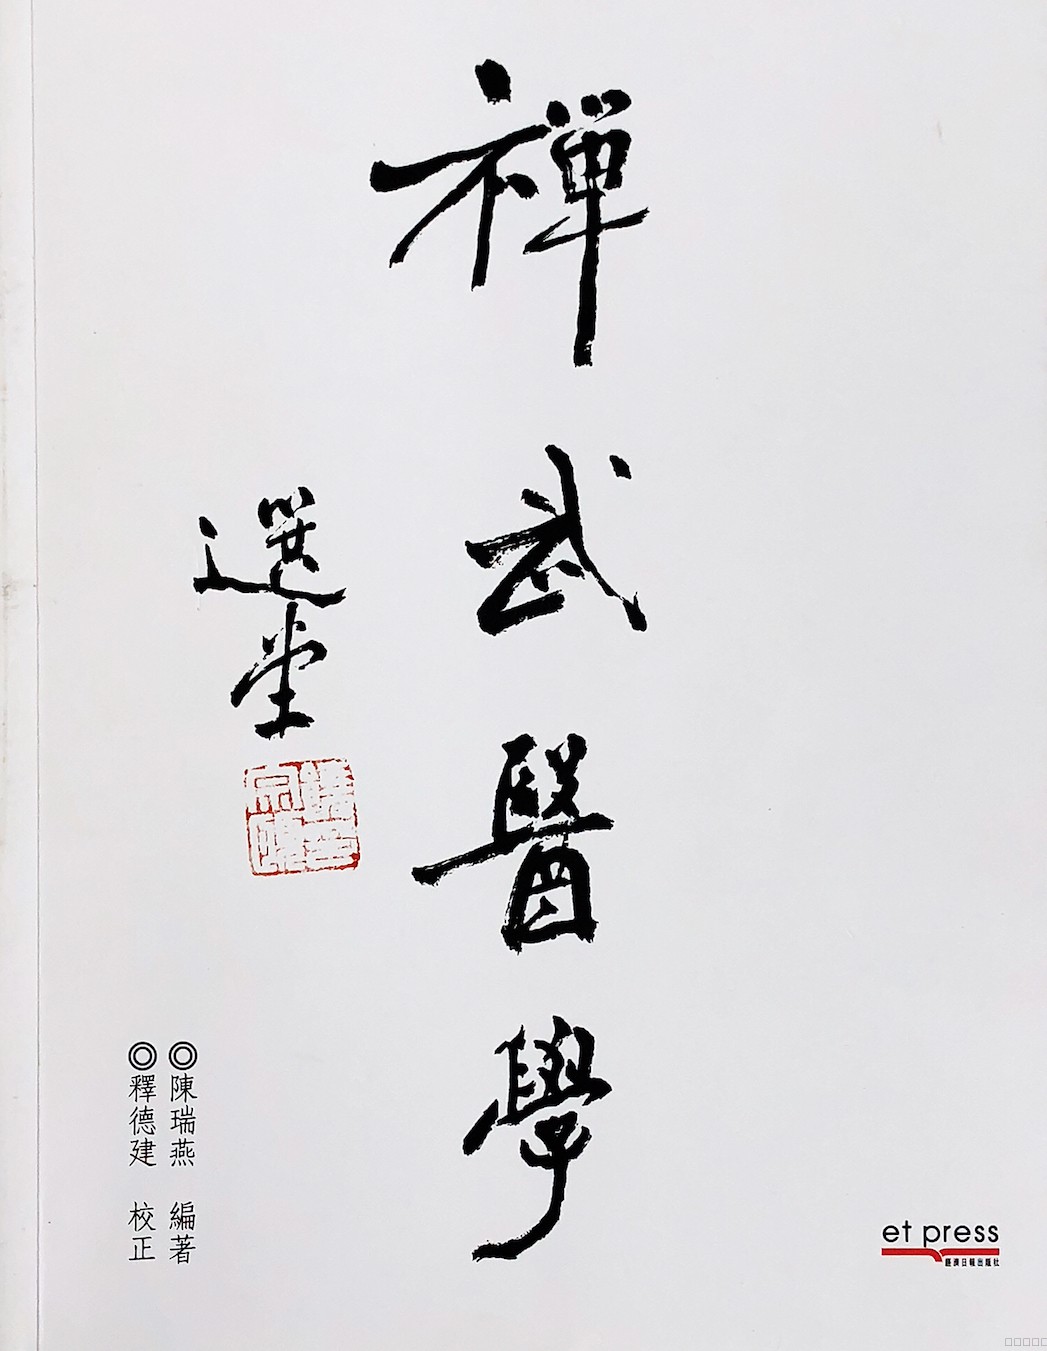 禪武醫學
選堂
◎陳瑞燕 編著
◎釋德建 校正
et press
經濟日報出版社